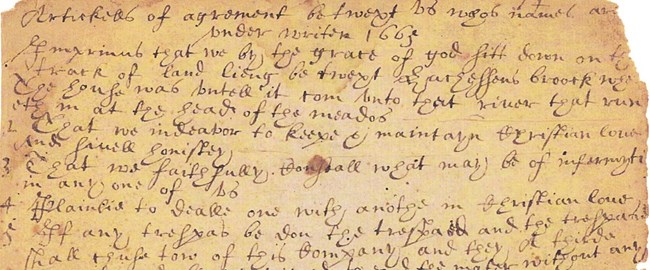 Artickells of agrement be twext us whos names are
under writen 1665
Imprimus that we by the grace of god sitt down on th
track of land lieng be twext Achacheffens broock whe
The house was untell it com unto that river that run
eth in at the head of the meados
2 That we indeavor to keepe & maintayn Christian love
and sivell honisty
3 That we faithfully Conseall what may be of infermyti
in any one of us
4 Plainlie to dealle one with anothe in Christian love
5 If any trespas be don the trespaed and the trespaser
shall chuse tow of this Company and they A thirde
the mater without any